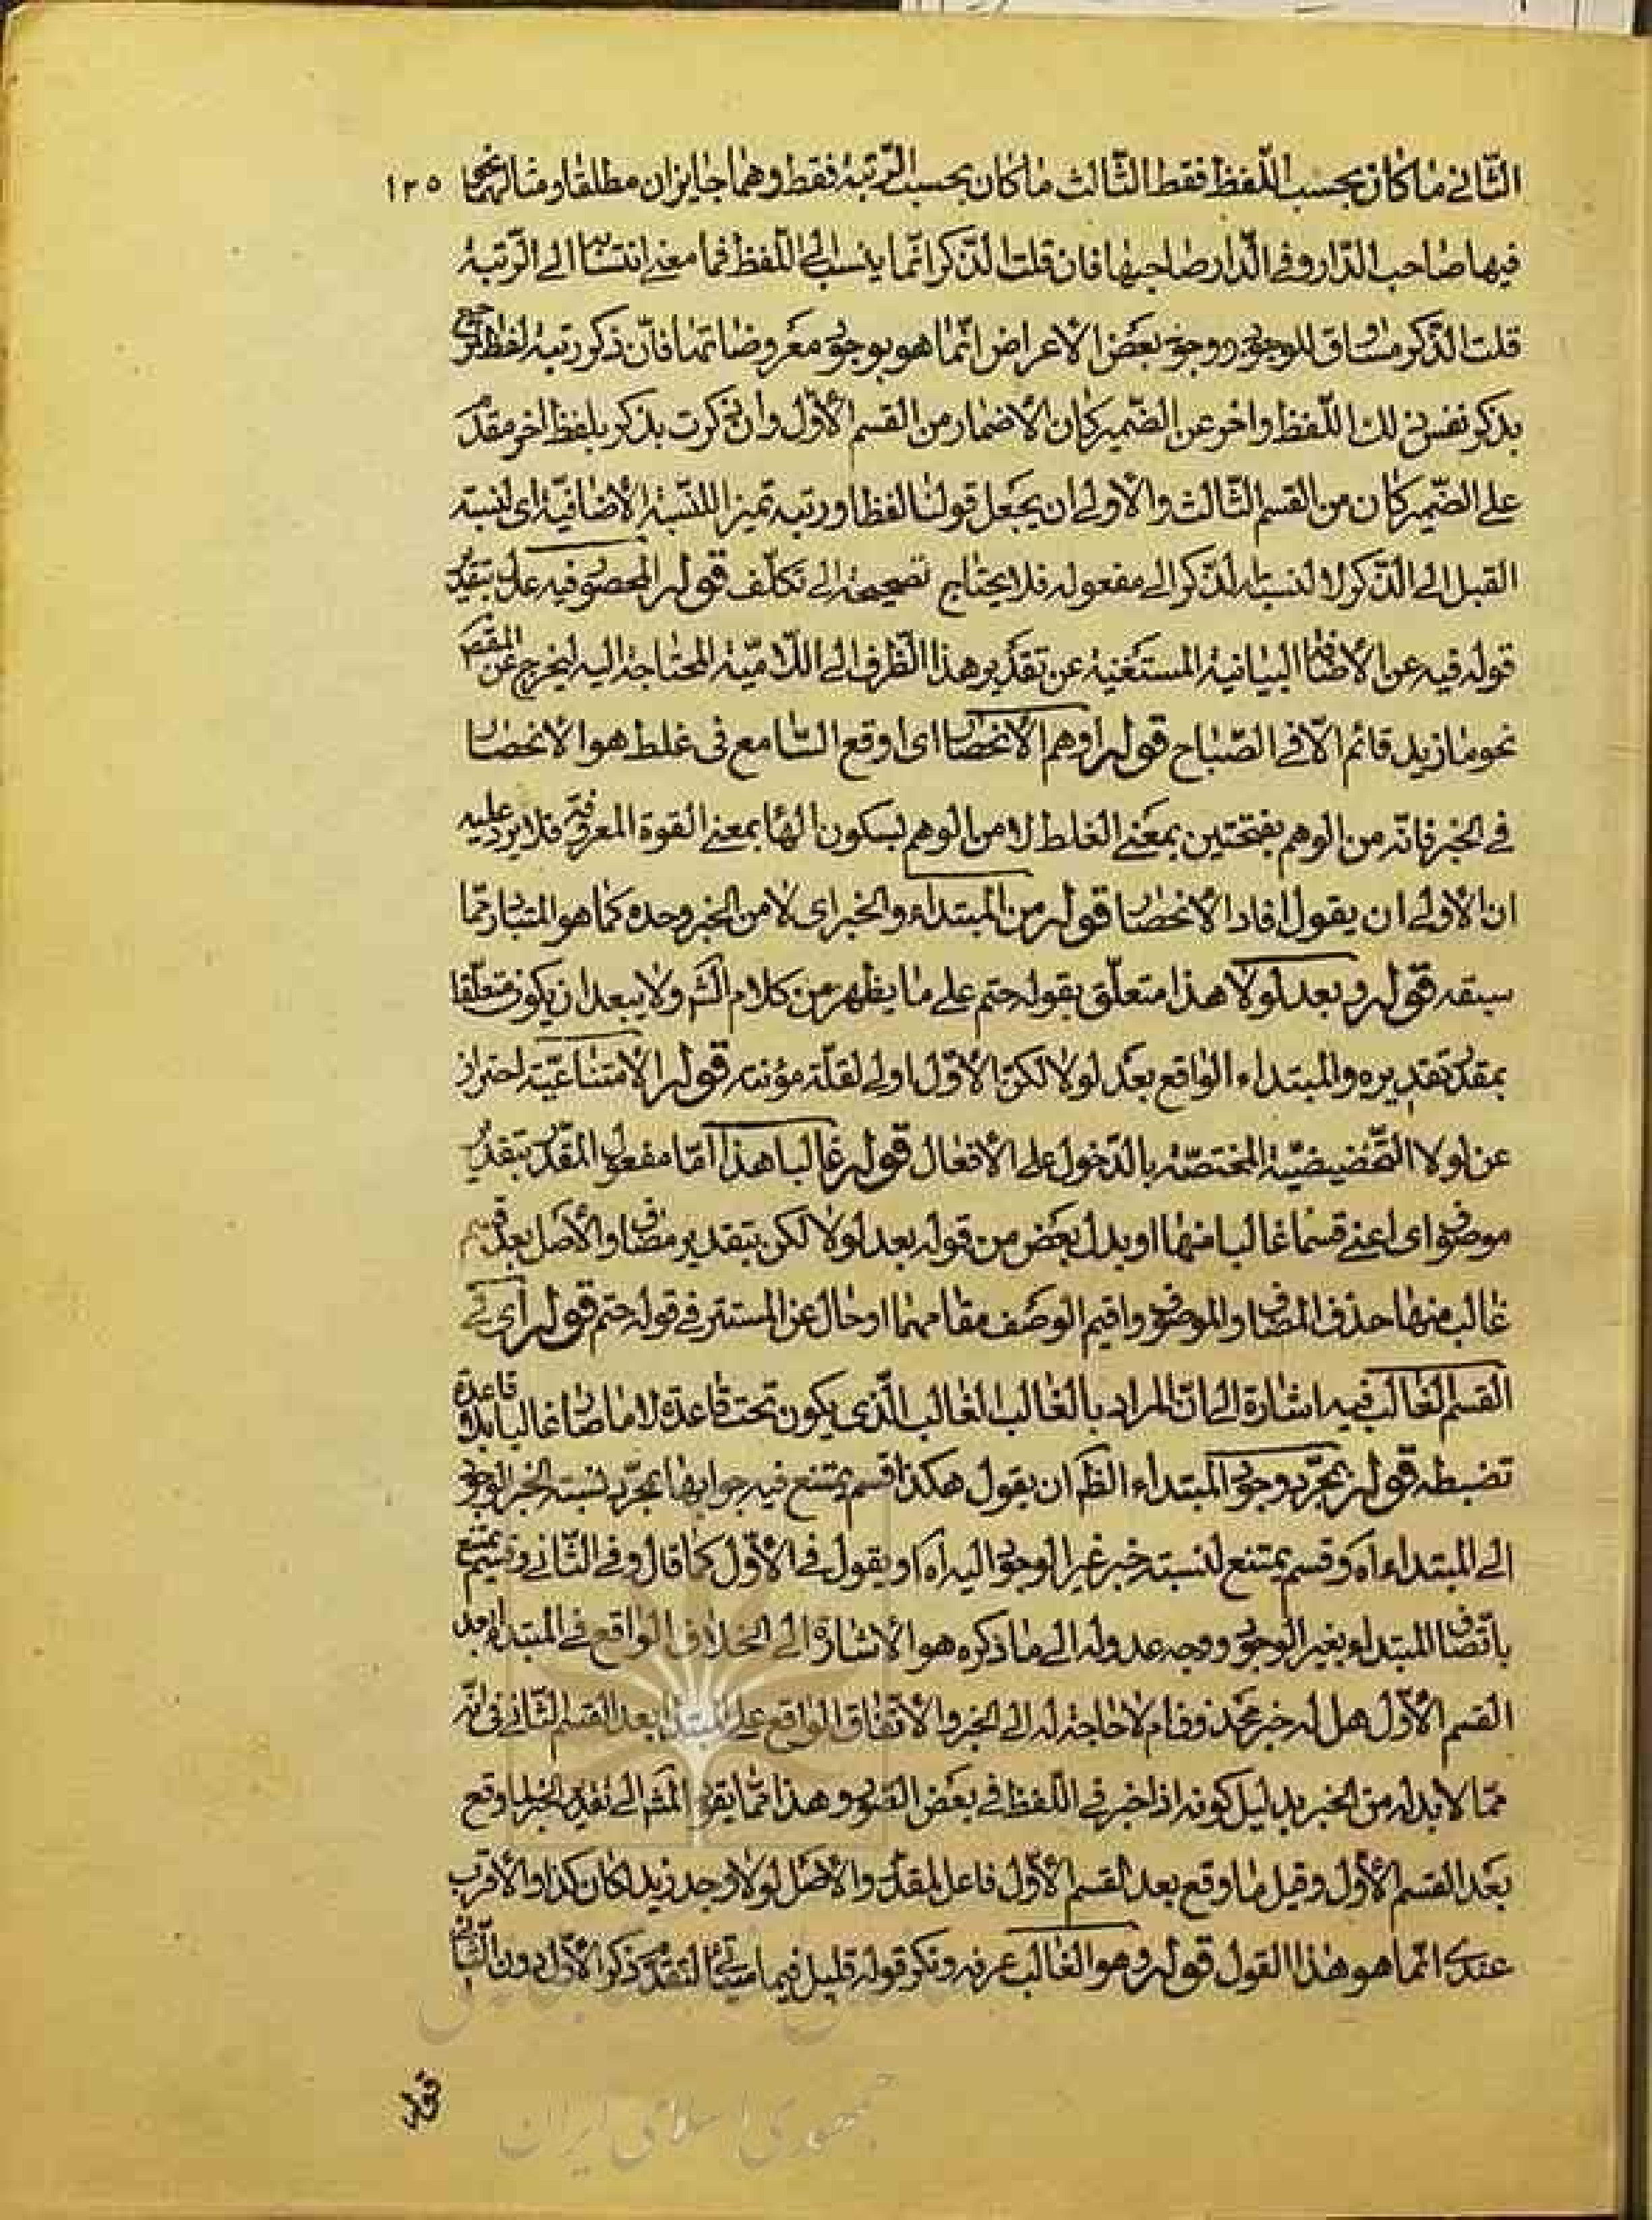 الثّاني ما كان بحسب اللّفظ فقط الثّالث ما كان بحسب الرّتبة فقط وهما جايزان مطلقا ومثالهما نحو ١٢٥
فيها صاحب الدّار وفي الدّار صاحبها فان قلت الذّكر انّما ينسب الى اللّفظ فما معنى انتسابه الى الرّتبة
قلت الذّكر مساوق للوجود ووجود بعض الاعراض انّما هو بوجود معروضاتها فان ذكر رتبة لفظ مرجع
بذكر نفس ذلك اللّفظ واخر عن الضّمير كان الاضمار من القسم الاوّل وان ذكرت بذكر بلفظ اخر مقدّم
على الضّمير كان من القسم الثّالث والاولى ان يجعل قولنا لفظا ورتبة تميزا للنّسبة الاضافيّة اى لنسبة
القبل الى الذّكر لا لنسبة الذّكر الى مفعوله فلا يحتاج تصحيحه الى تكلّف قوله المحصور فيه عدل بتقدير
قوله فيه عن الاضافة البيانية المستغنية عن تقدير هذا الظّرف الى اللّاميّة المحتاجة اليه ليخرج عن المقصم
نحو ما زيد قائم الّا في الصّباح قوله اوهم الانحصار اى اوقع السّامع فى غلط هو الانحصار
في الخبر فانّه من الوهم بفتحتين بمعنى الغلط لا من الوهم بسكون الهاء بمعنى القوة المعروفة فلا يرد عليه
ان الاولى ان يقول افاد الانحصار قوله من المبتداء والخبر اى لا من الخبر وحده كما هو المتبادر ممّا
سبقه قوله وبعد لولا هذا متعلّق بقوله حتم على ما يظهر من كلام الشم ولا يبعد ان يكون متعلّقا
بمقدّر تقديره والمبتداء الواقع بعد لولا لكن الاوّل اولى لقلّة مؤنته قوله الامتناعيّة احتراز
عن لولا التّحضيضيّة المختصّة بالدّخول على الافعال قوله غالبا هذا امّا مفعول لمقدّر بتقدير
موصوف اى اعنى قسما غالبا منها او بدل بعض من قوله بعد لولا لكن بتقدير مضاف والاصل بعد قسم
غالب منها حذف المضاف والموصوف واقيم الوصف مقامهما او حال عن المستتر في قوله حتم قوله اى في
القسم الغالب فيه اشارة الى ان المراد بالغالب الغالب الّذى يكون تحت قاعدة لا ما صار غالبا بلا قاعدة
تضبطه قوله بمجرّد وجود المبتداء الظم ان يقول هكذا قسم يمتنع فيه جوابها بمجرّد نسبة الخبر الوجود
الى المبتداء اه وقسم يمتنع لنسبة خبر غير الوجود اليه اه او يقول في الاوّل كما قال وفي الثّاني وقسم يمتنع
باتّصاف المبتداء بغير الوجود ووجه عدوله الى ما ذكره هو الاشارة الى الخلاف الواقع في المبتداء بعد
القسم الاوّل هل له خبر محذوف ام لا حاجة له الى الخبر والاتّفاق الواقع على المبتدا بعد القسم الثّاني فى انّه
ممّا لا بدّ له من الخبر بدليل كونه اذا خبر في اللّفظ في بعض الصّور وهذا ممّا يقود الشم الى تقدير الخبر لما وقع
بعد القسم الاوّل وقيل ما وقع بعد القسم الاوّل فاعل لمقدّر والاصل لولا وجد زيد لكان كذا والاقرب
عندى انّما هو هذا القول قوله وهو الغالب عرفه ونكّر قوله قليل فيما سيأتى لتقدّم ذكر الاوّل دون الثّاني
قوله
جمهوری اسلامی ایران